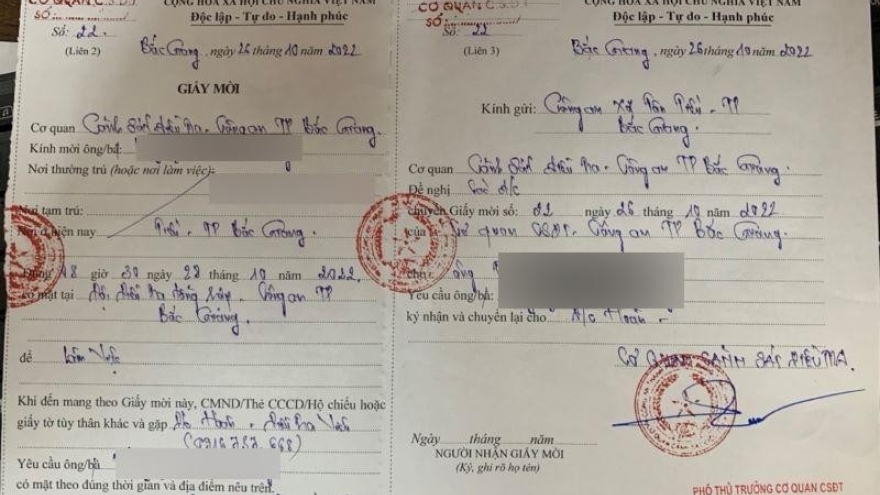 CƠ QUAN C.S.Đ.T
SỐ
CỘNG HÒA XÃ HỘI CHỦ NGHĨA VIỆT NAM
Độc lập - Tự do - Hạnh phúc
Số: 22
(Liên 2)
Bắc Giang, ngày 26 tháng 10 năm 2022
GIẤY MỜI
Cơ quan Cảnh sát điều tra - Công an TP Bắc Giang.
Kính mời ông/bà:
Nơi thường trú (hoặc nơi làm việc):
Nơi tạm trú:
Nơi ở hiện nay TP Bắc Giang.
giờ 30 ngày tháng 10 năm 2022.
có mặt tại Công an TP
Bắc Giang.
để Làm việc
Khi đến mang theo Giấy mời này, CMND/Thẻ CCCD/Hộ chiếu hoặc
giấy tờ tùy thân khác và gặp Đ/c Hoàn - Điều tra viên
Yêu cầu ông/bà
có mặt theo đúng thời gian và địa điểm nêu trên.
CƠ QUAN C.S.Đ.T
SỐ:
CỘNG HÒA XÃ HỘI CHỦ NGHĨA VIỆT NAM
Độc lập - Tự do - Hạnh phúc
Số: 22
(Liên 3)
Bắc Giang, ngày 26 tháng 10 năm 2022
Kính gửi: Công an xã Tân - TP
Bắc Giang.
Cơ quan Cảnh sát điều tra - Công an TP Bắc Giang.
Đề nghị đ/c
chuyển Giấy mời số: 22 ngày 26 tháng 10 năm 2022
của Cơ quan CSĐT - Công an TP Bắc Giang.
cho: ông
Yêu cầu ông/bà:
ký nhận và chuyển lại cho Đ/c Hoàn
CƠ QUAN CẢNH SÁT ĐIỀU TRA
Ngày tháng năm
NGƯỜI NHẬN GIẤY MỜI
(Ký, ghi rõ họ tên)
PHÓ THỦ TRƯỞNG CƠ QUAN CSĐT